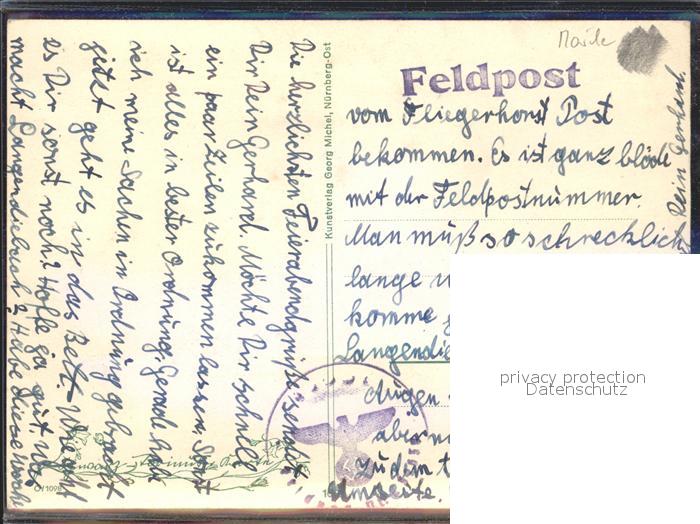 Die herzlichsten Feierabendgrüße sendet
Dir Dein Gerhard. Möchte Dir schnell
ein paar Zeilen zukommen lassen. Sonst
ist alles in bester Ordnung. Gerade hab
ich meine Sachen in Ordnung gebracht
jetzt geht es in das Bett. Wie geht
es Dir sonst noch? Hoffe ja gut. Was
macht Langendiebach? Habe diese Woche
Kunstverlag Georg Michel, Nürnberg-Ost
Feldpost
vom Fliegerhorst Post
bekommen. Es ist ganz blöde
mit der Feldpostnummer.
Man muß so schrecklich
lange
komme
Langendie
Augen
aber
zu dem
Umseite.
Dein Gerhard.
privacy protection
Datenschutz